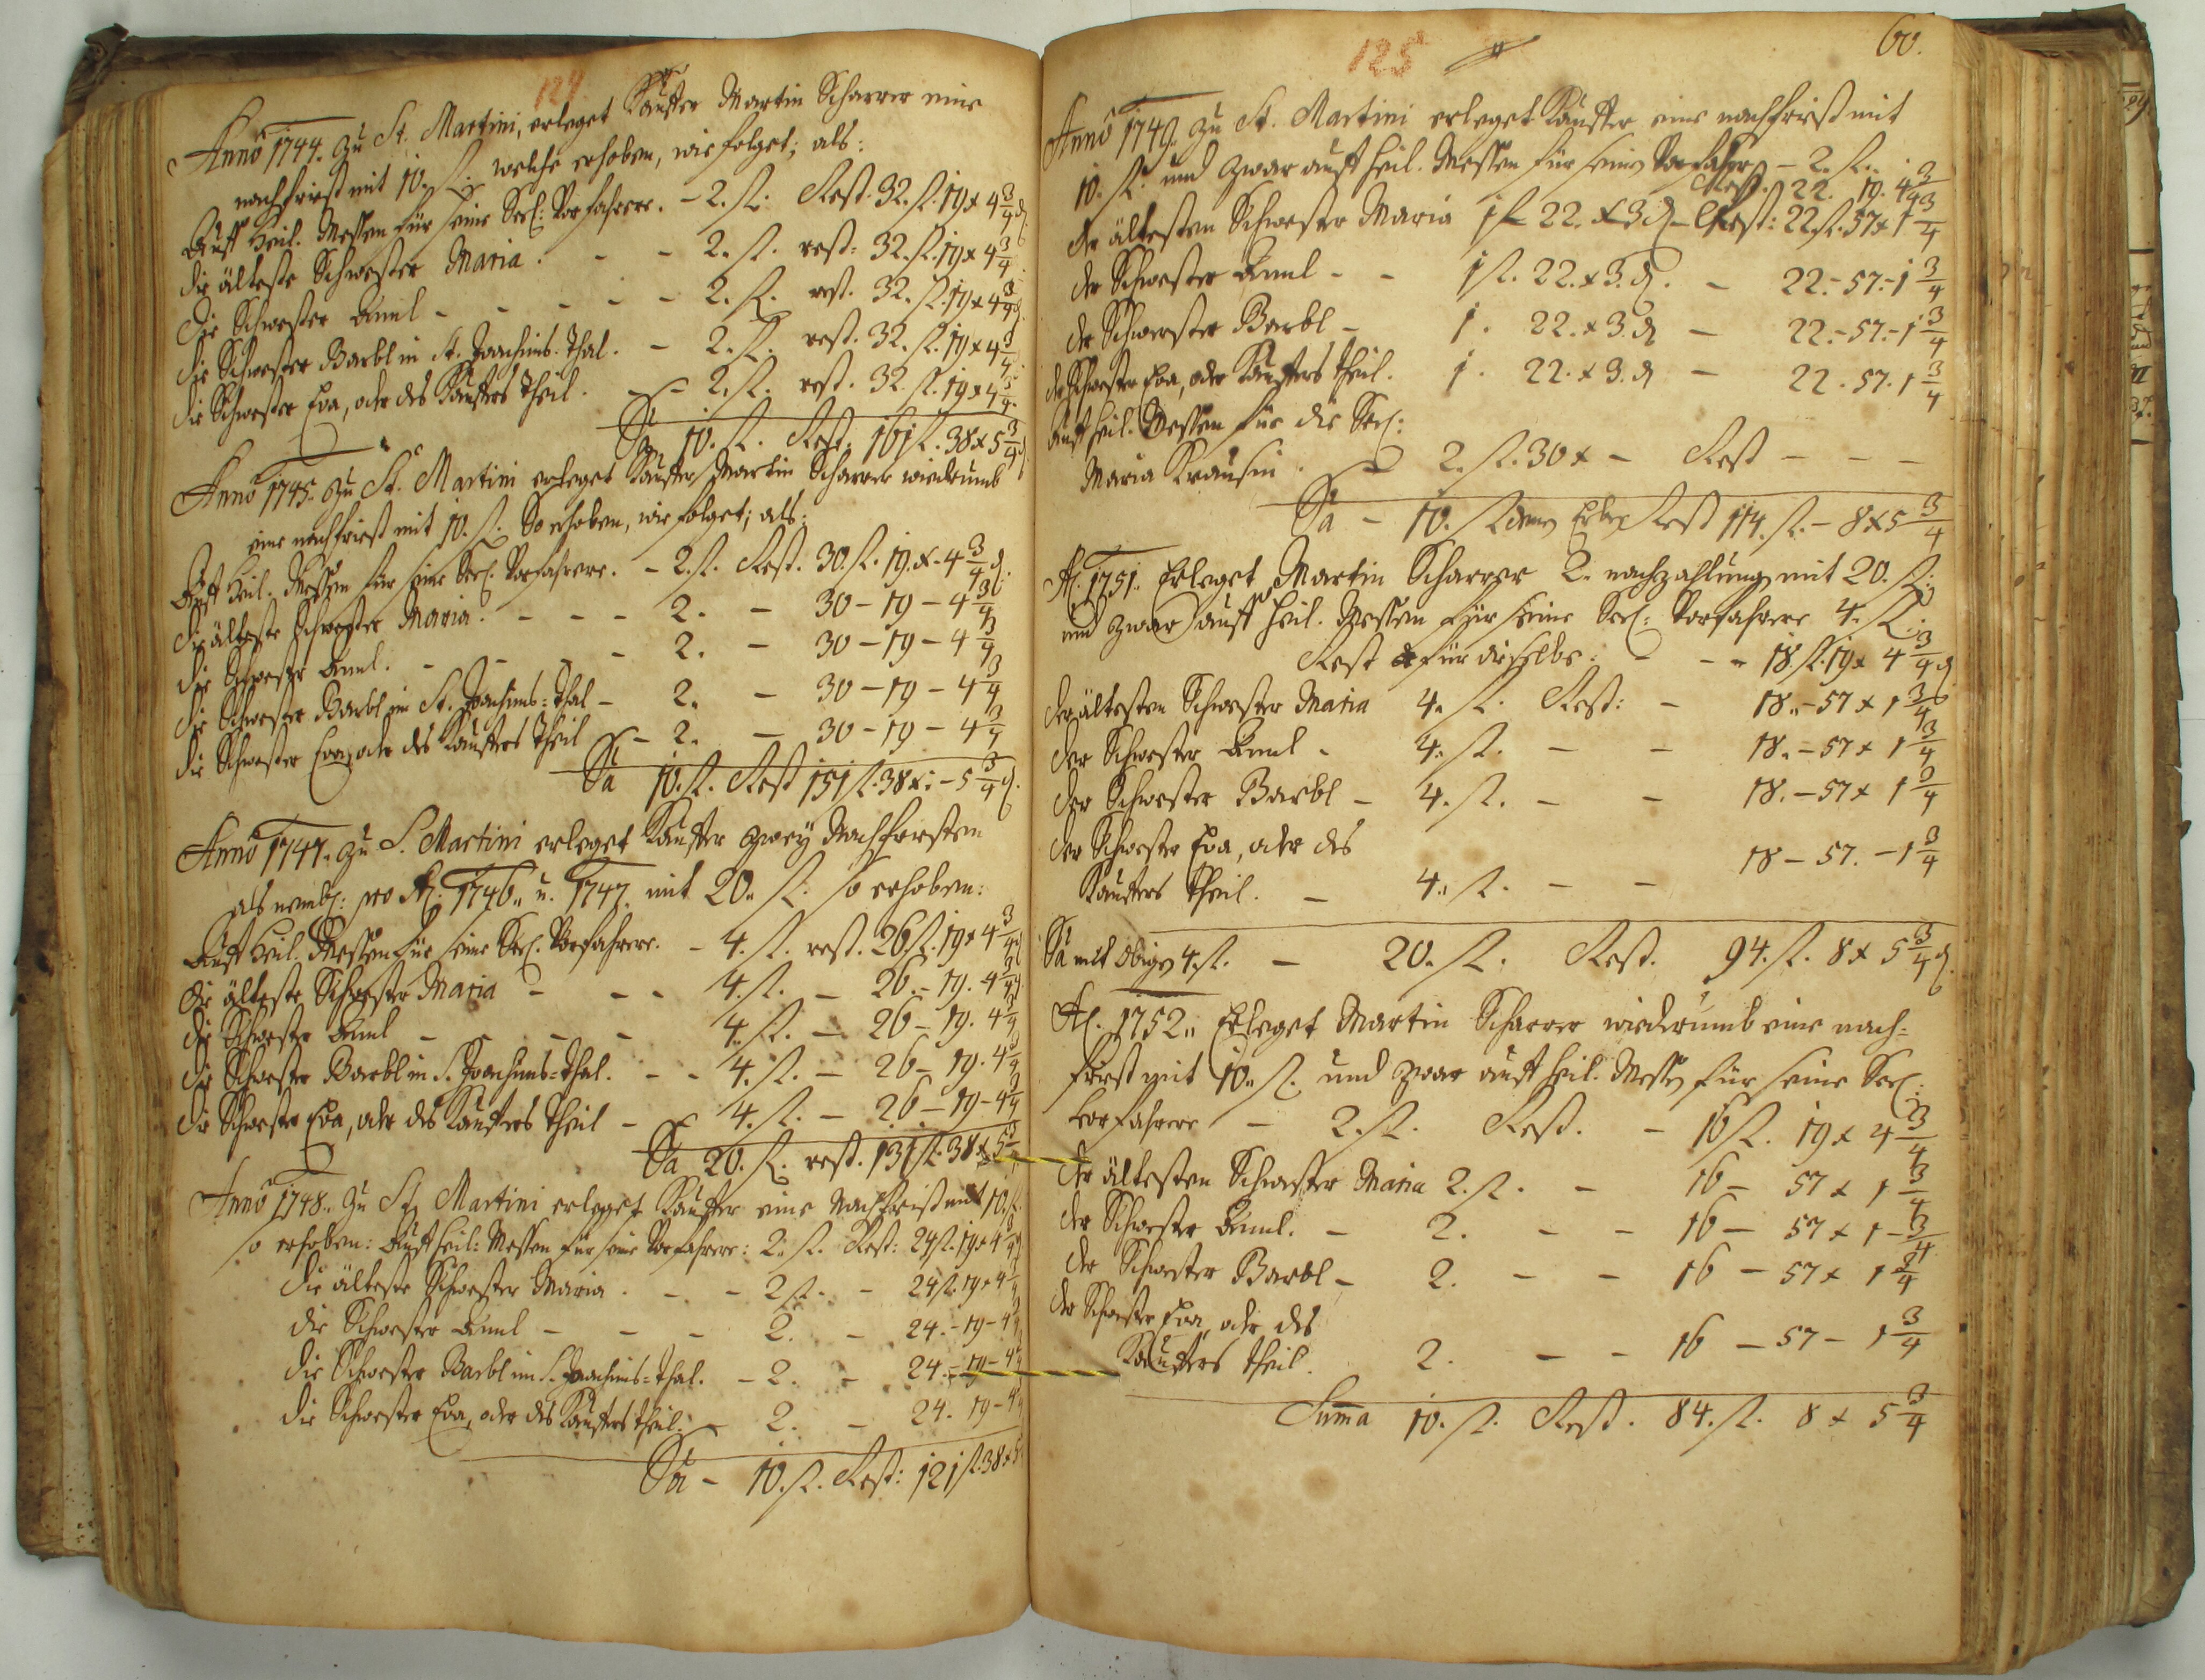 124
Anno 1744. zu St. Martini, erleget Kauffer Martin Scharrer eine
nachfrist mit 10. fl. welche erhoben, wie folget; als:
Auff Heil. Messen für seine Seel: Vorfahrere. - 2. fl. Rest. 32. fl. 19 x 4 3/4 d
die älteste Schwester Maria. - - 2. fl. rest: 32. fl. 19 x 4 3/4
die Schwester Annl - - - - - 2. fl. rest. 32. fl. 19 x 4 3/4 d
die Schwester Barbl in St. Joachims-Thal. - 2. fl. rest. 32. fl. 19 x 4 3/4
die Schwester Eva, oder des Kauffers Theil. - - 2. fl. rest. 32 fl. 19 x 4 3/4
Sa 10. fl. Rest: 161 fl. 38 x 5 3/4 d
Anno 1745. zu St. Martini erleget Kauffer Martin Scharrer wiedrumb
eine nachfrist mit 10. fl. So erhoben, wie folget; als:
Auff Heil. Messen für seine Seel. Vorfahrere. - 2. fl. Rest. 30. fl. 19. x - 4 3/4 d.
die älteste Schwester Maria. - - - 2. - 30 - 19 - 4 3/4
die Schwester Annl. - - - - 2. - 30 - 19 - 4 3/4
die Schwester Barbl in St. Joachims=Thal - 2. - 30 - 19 - 4 3/4
die Schwester Eva, oder des Kauffers Theil - 2. - 30 - 19 - 4 3/4
Sa 10. fl. Rest 151 fl. 38 x. - 5 3/4 d.
Anno 1747. zu S. Martini erleget Kauffer zwey Nachfristen
als nembl: pro Ao. 1746. u. 1747. mit 20. fl. so erhoben:
Auff Heil. Messen für seine Seel. Vorfahrere. - 4. fl. rest. 26 fl. 19 x 4 3/4 d
die älteste Schwester Maria - - - 4. fl. - 26. - 19. 4 3/4
die Schwester Annl - - - - 4. fl. - 26 - 19. 4 3/4
die Schwester Barbl in S. Joachims=Thal. - - 4. fl. - 26 - 19. 4 3/4
die Schwester Eva, oder des Kauffers Theil - 4. fl. - 26 - 19 - 4 3/4
Sa 20. fl. rest. 131 fl. 38 x 5 3/4
Anno 1748. zu St. Martini erleget Kauffer eine Nachfrist mit 10. fl.
so erhoben: Auff heil: Messen für seine Vorfahrere: 2. fl. Rest: 24 fl. 19 x 4 3/4
die älteste Schwester Maria. - - 2 fl. - 24 fl. 19 x 4 3/4
die Schwester Annl - - - 2. - 24. - 19 - 4 3/4
die Schwester Barbl in S. Joachims=Thal. - 2. - 24. - 19 - 4 3/4
die Schwester Eva, oder des Kauffers theil: - 2. - 24. 19 - 4 3/4
Sa - 10. fl. Rest: 121 fl. 38 x 5
125
60.
Anno 1749. zu St. Martini erleget Kauffer eine nachfrist mit
10. fl. und zwar auff heil. Messen für seine Vorfahrer - 2. fl.
Rest. 22. 19. 4 3/4
der ältesten Schwester Maria 1 fl 22. x 3 d - Rest: 22. fl. 57 x 1 3/4
der Schwester Annl - - 1 fl. 22. x 3. d. - 22. - 57. - 1 3/4
der Schwester Barbl - 1. 22. x 3. d - 22. - 57. - 1 3/4
der Schwester Eva, oder Kauffers Theil. 1. 22. x 3. d - 22. 57. 1 3/4
Auff heil. Messen für die Seel:
Maria Krausin. - 2. fl. 30 x - Rest - - -
Sa - 10. fl Rest 114. fl. - 8 x 5 3/4
Ao. 1751. Erleget Martin Scharrer 2. nachzahlung mit 20. fl.
und zwar auff heil. Messen für seine Seel: Vorfahrere 4. fl.
Rest für dieselbe: - - 18 fl. 19 x 4 3/4 d
der ältesten Schwester Maria 4. fl. Rest: - 18. - 57 x 1 3/4
der Schwester Annl - 4. fl. - - 18. - 57 x 1 3/4
der Schwester Barbl - 4. fl. - - 18. - 57 x 1 3/4
der Schwester Eva, oder des
Kauffers Theil. - 4. fl. - - 18 - 57. - 1 3/4
Sa mit obigen 4. fl. - 20. fl. Rest. 94. fl. 8 x 5 3/4 d.
Ao. 1752. Erleget Martin Scharrer wiedrumb eine nach=
frist mit 10. fl. und zwar auff heil. Messen für seine Seel:
Vorfahrere - 2. fl. Rest. - 16 fl. 19 x 4 3/4
der ältesten Schwester Maria 2. fl. - 16 - 57 x 1 3/4
der Schwester Annl. - 2. - - 16 - 57 x 1 - 3/4
der Schwester Barbl - 2. - - 16 - 57 x 1 3/4
der Schwester Eva, oder des
Kauffers theil. 2. - - 16 - 57 - 1 3/4
Summa 10. fl. Rest. 84. fl. 8 x 5 3/4